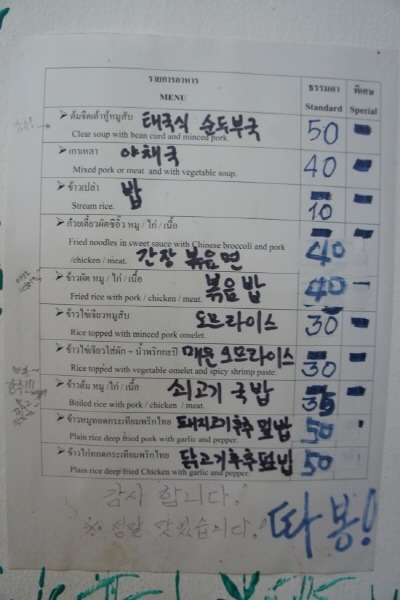 รายการอาหาร ธรรมดา พิเศษ
MENU Standard Special
➤ ต้มจืดเต้าหู้หมูสับ 태국식 순두부국 50
Clear soup with bean curd and minced pork.
➤ เกาเหลา 야채국 40
Mixed pork or meat and with vegetable soup.
➤ ข้าวเปล่า 밥 10
Stream rice.
➤ ก๋วยเตี๋ยวผัดซีอิ๊ว หมู / ไก่ / เนื้อ 40
Fried noodles in sweet sauce with Chinese broccoli and pork
/chicken / meat. 간장 볶음면
➤ ข้าวผัด หมู / ไก่ / เนื้อ 볶음밥 40
Fried rice with pork / chicken / meat.
➤ ข้าวไข่เจียวหมูสับ 오므라이스 30
Rice topped with minced pork omelet.
➤ ข้าวไข่เจียวใส่ผัก - น้ำพริกกะปิ 매운 오므라이스 30
Rice topped with vegetable omelet and spicy shrimp paste.
➤ ข้าวต้ม หมู / ไก่ / เนื้อ 쇠고기 국밥 35
Boiled rice with pork / chicken / meat.
➤ ข้าวหมูทอดกระเทียมพริกไทย 돼지고기후추덮밥 50
Plain rice deep fried pork with garlic and pepper.
➤ ข้าวไก่ทอดกระเทียมพริกไทย 닭고기후추덮밥 50
Plain rice deep fried Chicken with garlic and pepper.
감사 합니다!
※ 정말 맛있습니다! 따봉!